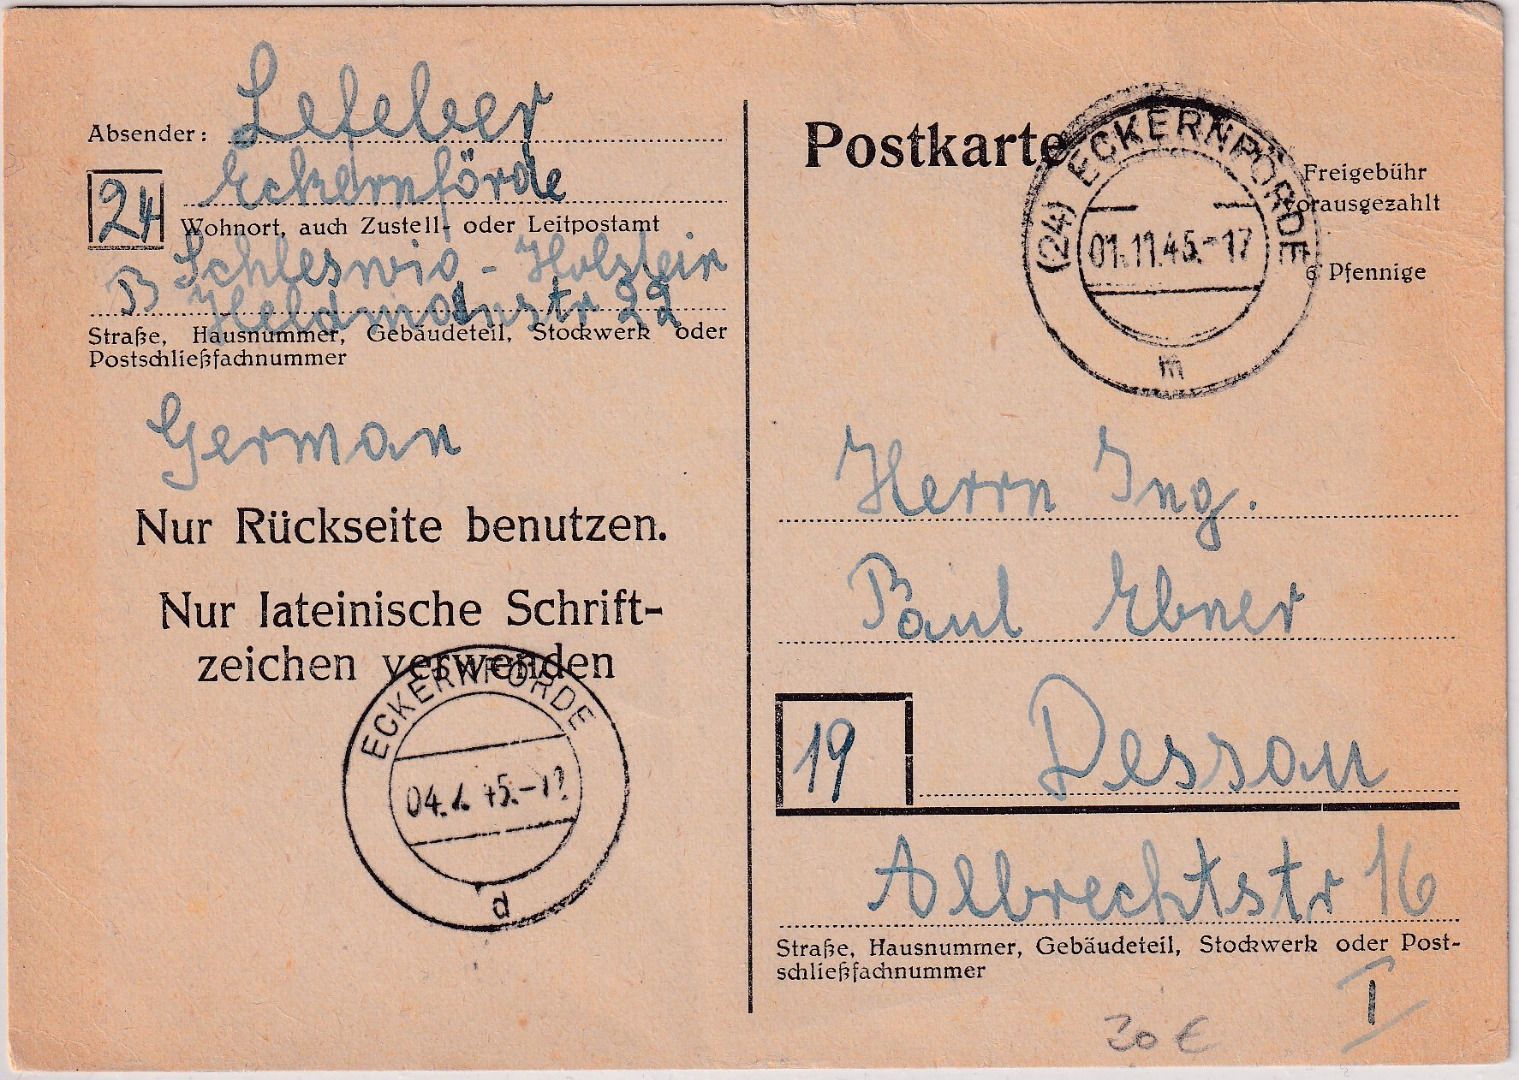 Absender: Lefeber
24 Eckernförde
Wohnort, auch Zustell- oder Leitpostamt
B Schleswig-Holstein
Straße, Hausnummer, Gebäudeteil, Stockwerk oder
Postschließfachnummer
German
Nur Rückseite benutzen.
Nur lateinische Schrift-
zeichen verwenden
ECKERNFÖRDE
d
Postkarte
(24) ECKERNFÖRDE
01.11.45.-17
m
Freigebühr
vorausgezahlt
6 Pfennige
Herrn Ing.
Paul Ebner
19 Dessau
Albrechtstr 16
Straße, Hausnummer, Gebäudeteil, Stockwerk oder Post-
schließfachnummer
I